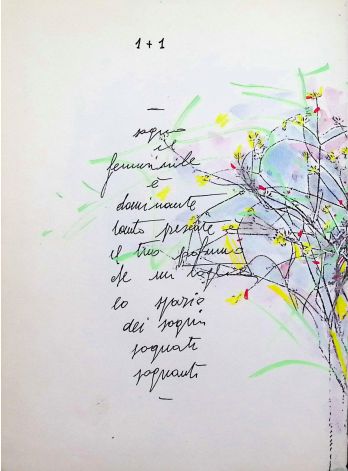 1 + 1
–
sogno
il
femminile
è
dominante
tanto pesante è
il tuo profumo
che mi toglie
lo spazio
dei sogni
sognati
sognanti
–